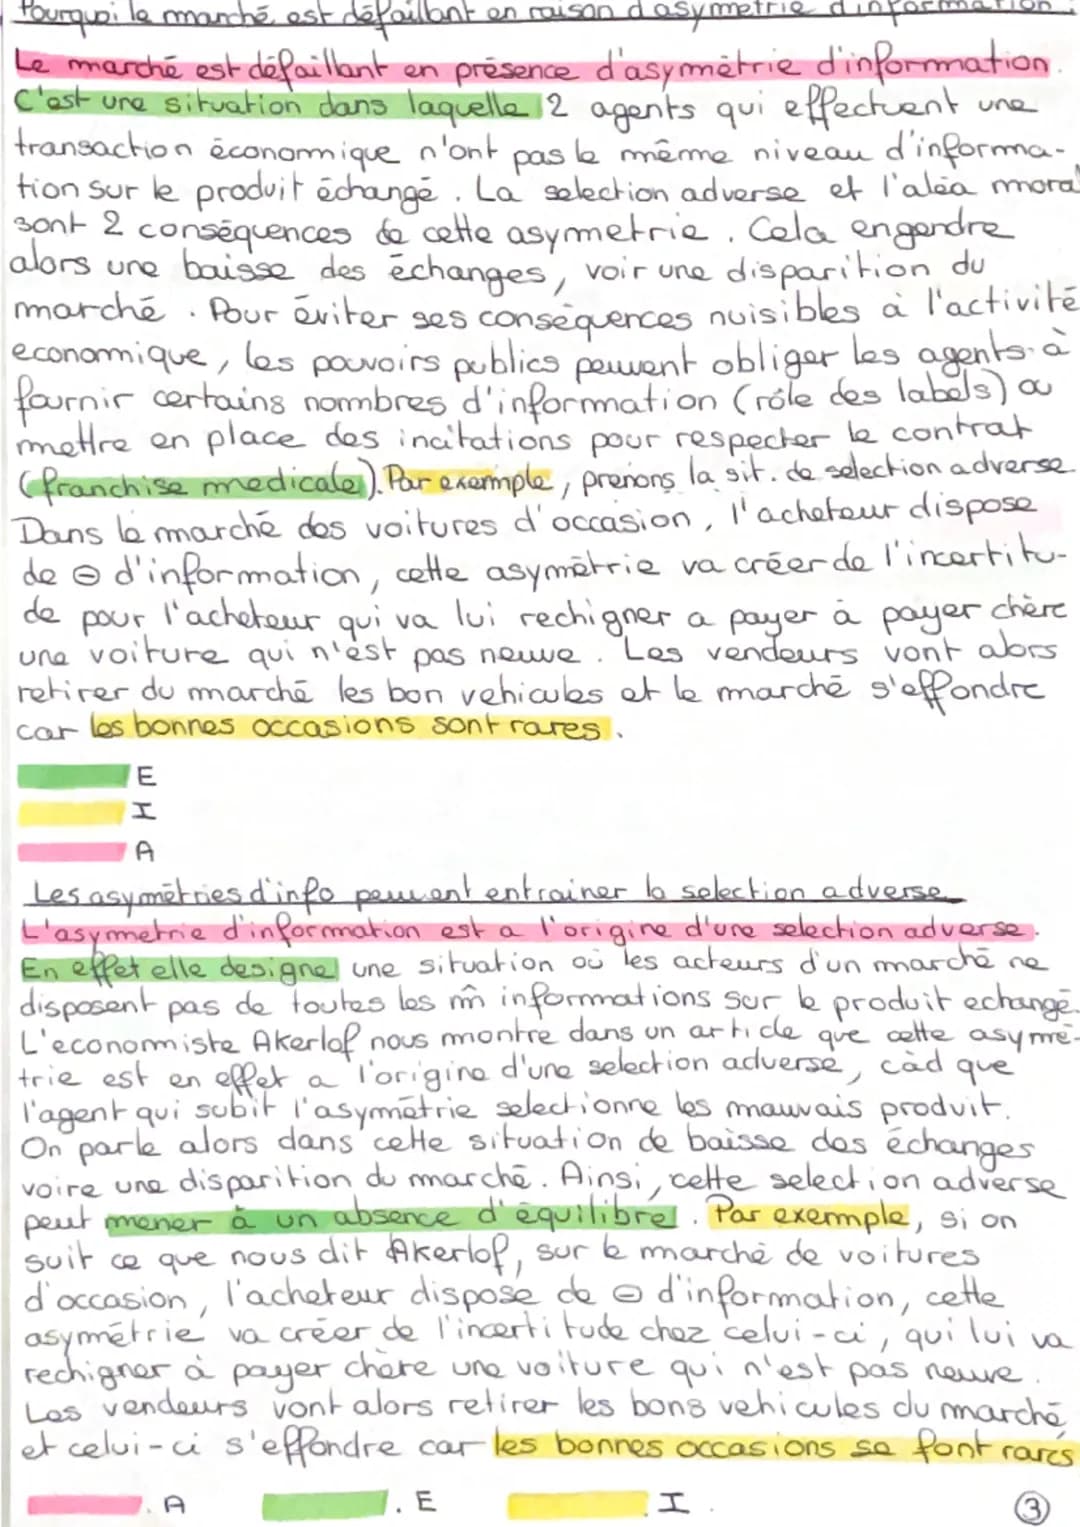 Pourquoi le marché est défaillant en raison d'asymetrie d'information :
Le marché est défaillant en présence d'asymètrie d'information.
C'est une situation dans laquelle 2 agents qui effectuent une
transaction économique n'ont pas le même niveau d'informa-
tion sur le produit échangé. La selection adverse et l'aléa moral
sont 2 conséquences de cette asymetrie. Cela engendre
alors une baisse des échanges, voir une disparition du
marché. Pour éviter ses conséquences nuisibles à l'activité
economique, les pouvoirs publics peuvent obliger les agents à
fournir certains nombres d'information (rôle des labels) ou
mettre en place des incitations pour respecter le contrat
(franchise medicale). Par exemple, prenons la sit. de selection adverse.
Dans le marché des voitures d'occasion, l'acheteur dispose
de ⊖ d'information, cette asymétrie va créer de l'incertitu-
de pour l'acheteur qui va lui rechigner a payer à payer chère
une voiture qui n'est pas neuve. Les vendeurs vont alors
retirer du marché les bon vehicules et le marché s'effondre
car les bonnes occasions sont rares.
E
I
A
Les asymétries d'info peuvent entrainer la selection adverse
L'asymmetrie d'information est a l'origine d'une selection adverse.
En effet elle designe une situation où les acteurs d'un marché ne
disposent pas de toutes les m̂ informations sur le produit echangé.
L'economiste Akerlof nous montre dans un article que cette asymé-
trie est en effet a l'origine d'une selection adverse, càd que
l'agent qui subit l'asymétrie selectionne les mauvais produit.
On parle alors dans cette situation de baisse des échanges
voire une disparition du marché. Ainsi, cette selection adverse
peut mener à un absence d'équilibre. Par exemple, si on
suit ce que nous dit Akerlof, sur le marché de voitures
d'occasion, l'acheteur dispose de ⊖ d'information, cette
asymétrie va créer de l'incertitude chez celui-ci, qui lui va
rechigner à payer chère une voiture qui n'est pas neuve.
Les vendeurs vont alors retirer les bons vehicules du marché
et celui-ci s'effondre car les bonnes occasions se font rares
. A . E I .
3